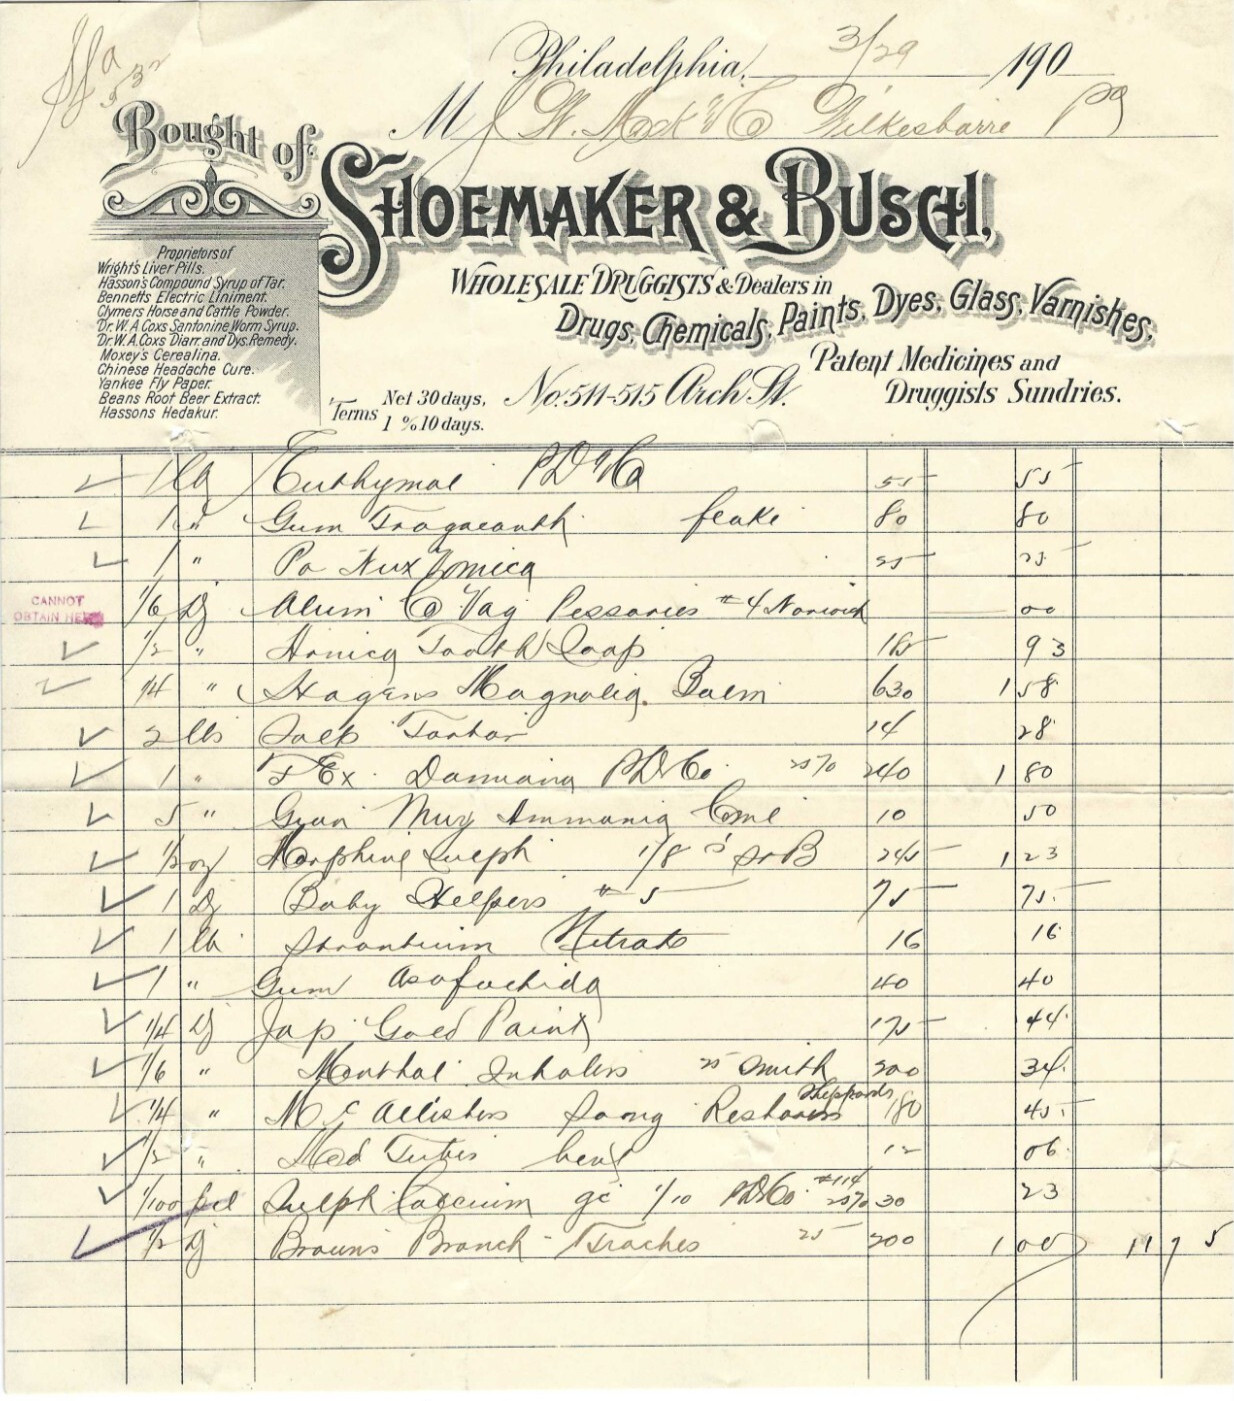 Philadelphia, 3/29 190
M J W. & Co Wilkesbarre Pa
Bought of
SHOEMAKER & BUSCH,
WHOLESALE DRUGGISTS & Dealers in
Drugs, Chemicals, Paints, Dyes, Glass, Varnishes,
Patent Medicines and
Druggists Sundries.
No. 511-515 Arch St.
Terms Net 30 days,
1 % 10 days.
Proprietors of
Wright's Liver Pills.
Hasson's Compound Syrup of Tar.
Bennetts Electric Liniment.
Clymers Horse and Cattle Powder.
Dr. W. A Coxs Santonine Worm Syrup.
Dr. W. A. Coxs Diarr. and Dys. Remedy.
Moxey's Cerealina.
Chinese Headache Cure.
Yankee Fly Paper.
Beans Root Beer Extract.
Hassons Hedakur.
1 lb Euthymol PD & Co 55 55
1 " Gum Tragacanth flake 80 80
1 " Po Nux Vomica 25 25
CANNOT
OBTAIN HERE
1/6 Dz Alum Co Vag Pessaries #4 Norwich 00
1/2 " Arnica Tooth Soap 185 93
1/4 " Hagens Magnolia Balm 630 1 58
2 lbs Salts Tartar 14 28
1 " Fl Ex Damiana PD & Co 25% 240 1 80
5 " Gran Mur Ammonia Coml 10 50
1/2 oz Morphine Sulph 1/8 s 245 1 23
1 Dz Baby Helpers " 5 75 75
1 lb Strontium Nitrate 16 16
1 " Gum Asafoetida 40 40
1/4 Dz Jap Gold Paint 175 44
1/6 " Menthol Inhalers 25 Smith 200 34
1/4 " McAllisters Song Restorers Sheppards 180 45
1/2 " Med Tubes bent 12 06
1/100 Sulph Calcium gc 1/10 PD & Co #114 25% 30 23
1/2 Dz Browns Bronch Troches 25 200 1 00 11 75